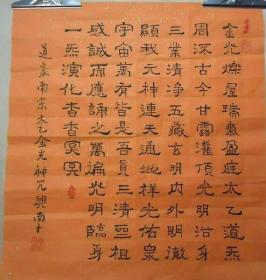 金光爍屋瑞氣盈庭太乙道炁
周流古今甘露灌頂光明治身
三業清淨五藏玄明内外明徹
顯我元神連天通地祥光佑泉
宇宙萬有皆是吾真三清三祖
感誠而應誦之萬徧光明臨身
一炁演化杳杳冥冥
道家南宗太乙金光神咒